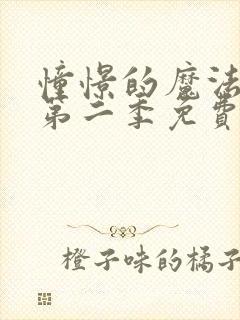 憧憬的魔法
第二季免費
橙子味的橘子